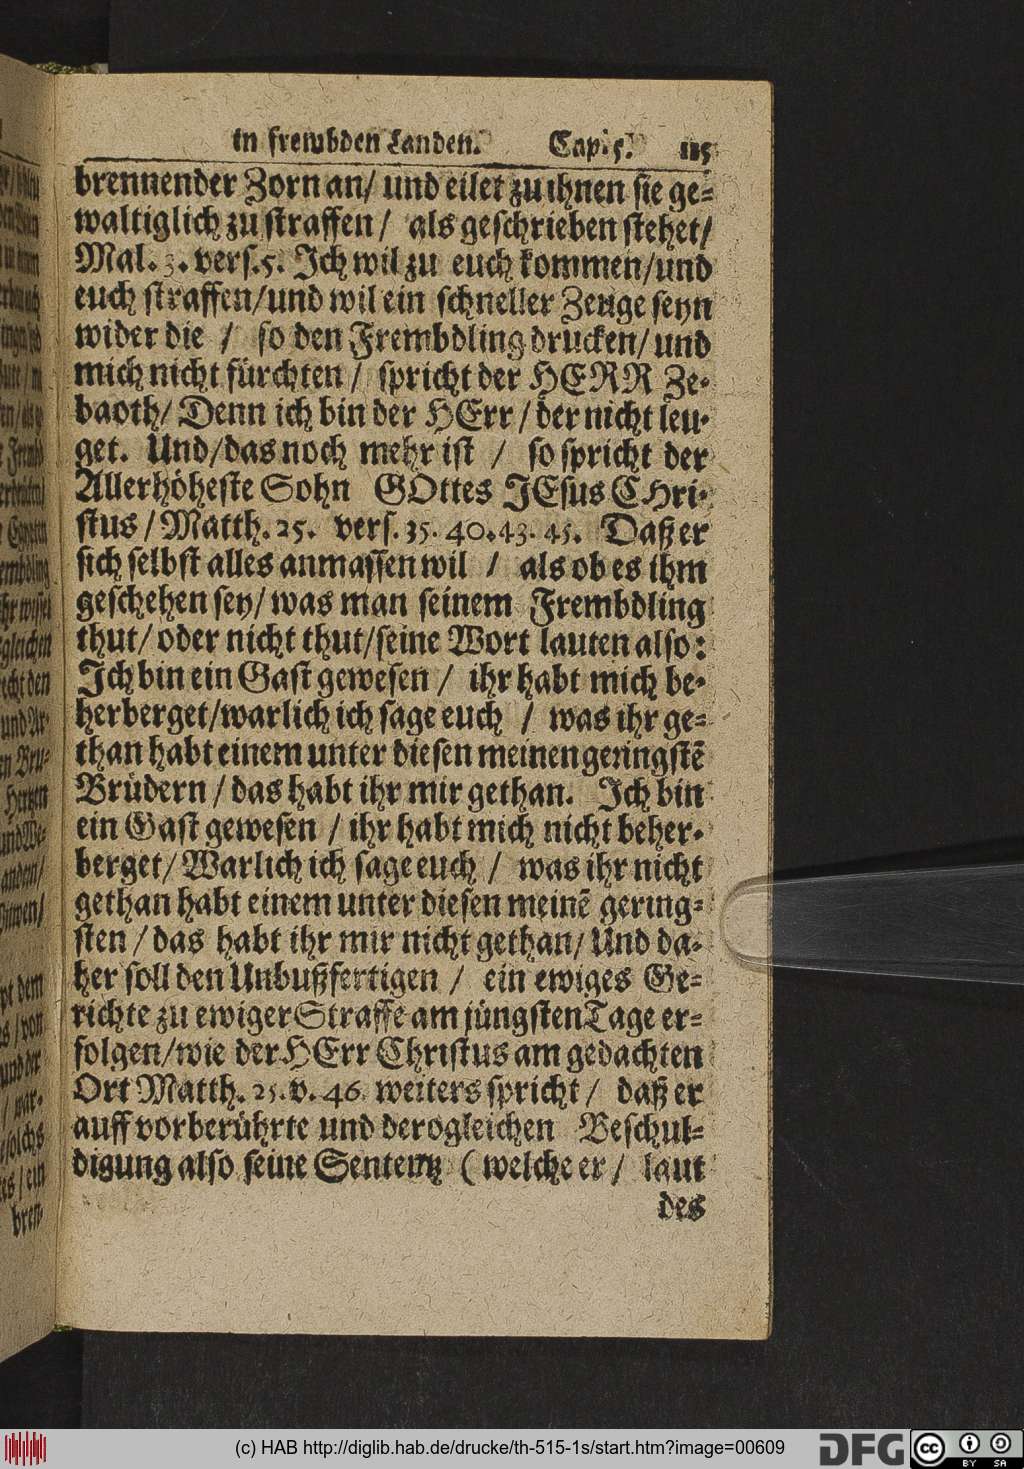 in frembden Landen. Cap. 5. 115
brennender Zorn an/ und eilet zu ihnen sie ge=
waltiglich zu straffen / als geschrieben stehet/
Mal. 3. vers. 5. Ich wil zu euch kommen/und
euch straffen/und wil ein schneller Zeuge seyn
wider die / so den Frembdling drucken/ und
mich nicht fürchten / spricht der HERR Ze=
baoth/ Denn ich bin der HErr / der nicht leu=
get. Und/das noch mehr ist / so spricht der
Allerhöheste Sohn GOttes JEsus CHri=
stus / Matth. 25. vers. 35. 40. 43. 45. Daß er
sich selbst alles anmassen wil / als ob es ihm
geschehen sey/ was man seinem Frembdling
thut/ oder nicht thut/seine Wort lauten also:
Ich bin ein Gast gewesen / ihr habt mich be=
herberget/warlich ich sage euch / was ihr ge=
than habt einem unter diesen meinen geringstẽ
Brüdern / das habt ihr mir gethan. Ich bin
ein Gast gewesen / ihr habt mich nicht beher=
berget/ Warlich ich sage euch / was ihr nicht
gethan habt einem unter diesen meinẽ gering=
sten / das habt ihr mir nicht gethan/ Und da=
her soll den Unbußfertigen / ein ewiges Ge=
richte zu ewiger Straffe am jüngsten Tage er=
folgen/wie der HErr Christus am gedachten
Ort Matth. 25. v. 46. weiters spricht / daß er
auff vorberührte und derogleichen Beschul=
digung also seine Sententz ( welche er / laut
des
(c) HAB http://diglib.hab.de/drucke/th-515-1s/start.htm?image=00609
DFG
cc
BY SA